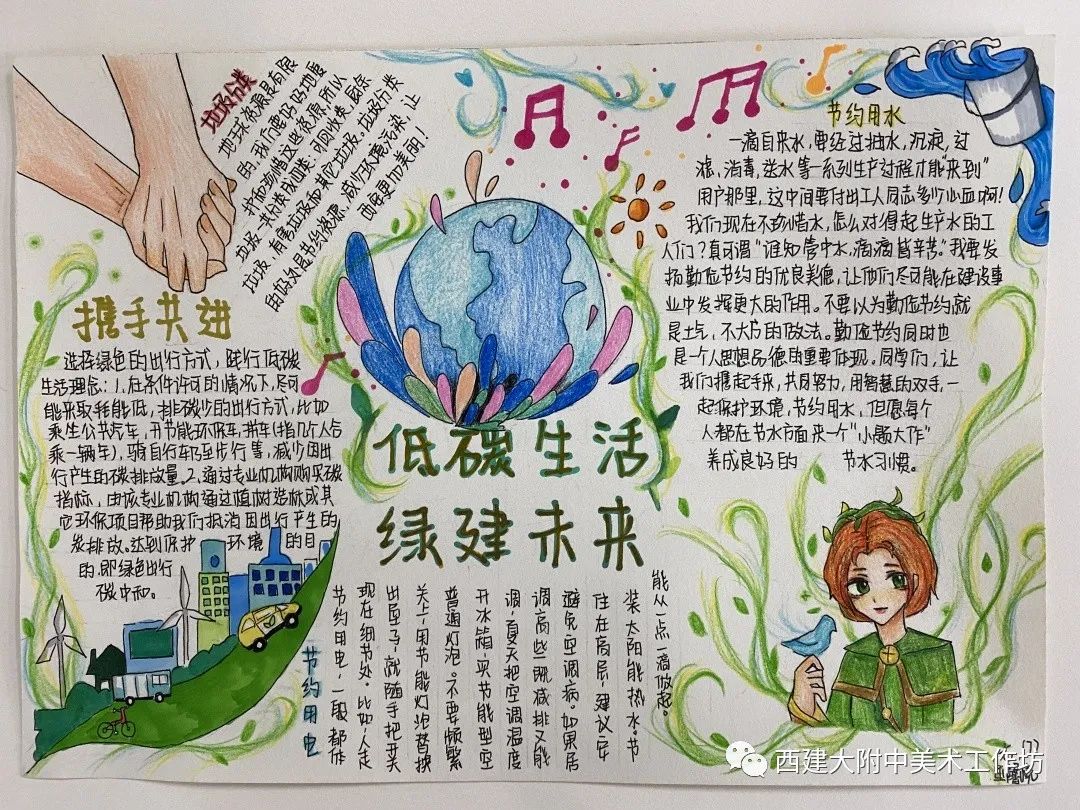 垃圾分类
地球资源是有限
的,我们要好好地爱
护和珍惜这些资源,所以
垃圾一共分类成四类:可回收类、厨余
垃圾,有害垃圾和其它垃圾。垃圾分类
由好处是节约资源,减少环境污染,让
西安更加美丽!
携手共进
选择绿色的出行方式,践行低碳
生活理念:1.在条件许可的情况下,尽可
能采取耗能低,排碳少的出行方式,比如
乘坐公共汽车,开节能环保车,拼车(指几个人合
乘一辆车),骑自行车乃至步行等,减少因出
行产生的碳排放量。2.通过专业机构购买碳
指标,由该专业机构通过植树造林或其
它环保项目帮助我们抵消因出行产生的
炭排放。达到保护环境的目
的.即绿色出行
碳中和。
低碳生活
绿建未来
节约用水
一滴自来水,要经过抽水,沉淀,过
滤、消毒、送水等一系列生产过程才能"来到"
用户那里,这中间要付出工人同志多少心血啊!
我们现在不珍惜水,怎么对得起生产水的工
人们?真可谓"谁知管中水,滴滴皆辛苦。"我要发
扬勤俭节约的优良美德,让他们尽可能在建设事
业中发挥更大的作用。不要以为勤俭节约就
是土气,不大方的做法。勤俭节约同时也
是一个人思想品德的重要体现。同学们,让
我们携起手来,共同努力,用智慧的双手,一
起保护环境,节约用水,但愿每个
人都在节水方面来一个"小题大作"
养成良好的节水习惯。
节约用电
节约用电,一般都作
现在细节处。比如:人走
出屋子,就随手把开关
关上,用节能灯泡替换
普通灯泡。不要频繁
开冰箱,买节能型空
调,夏天把空调温度
调高些,既减排又能
避免空调病。如果居
住在高层,建议安
装太阳能热水。节
能从一点一滴做起。
西建大附中美术工作坊